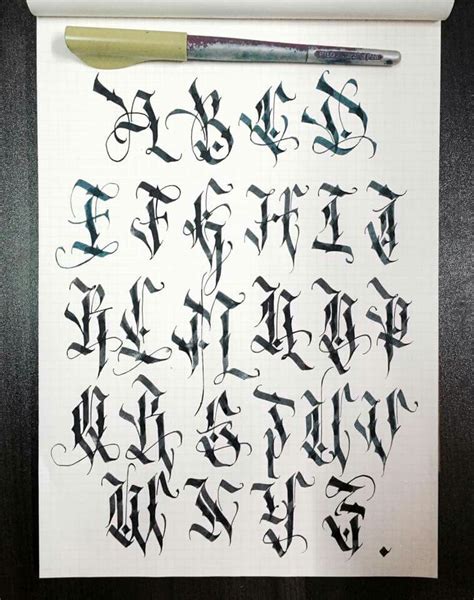 A B C D
E F G H I J
K L M N O P
Q R S T U V
W X Y Z .